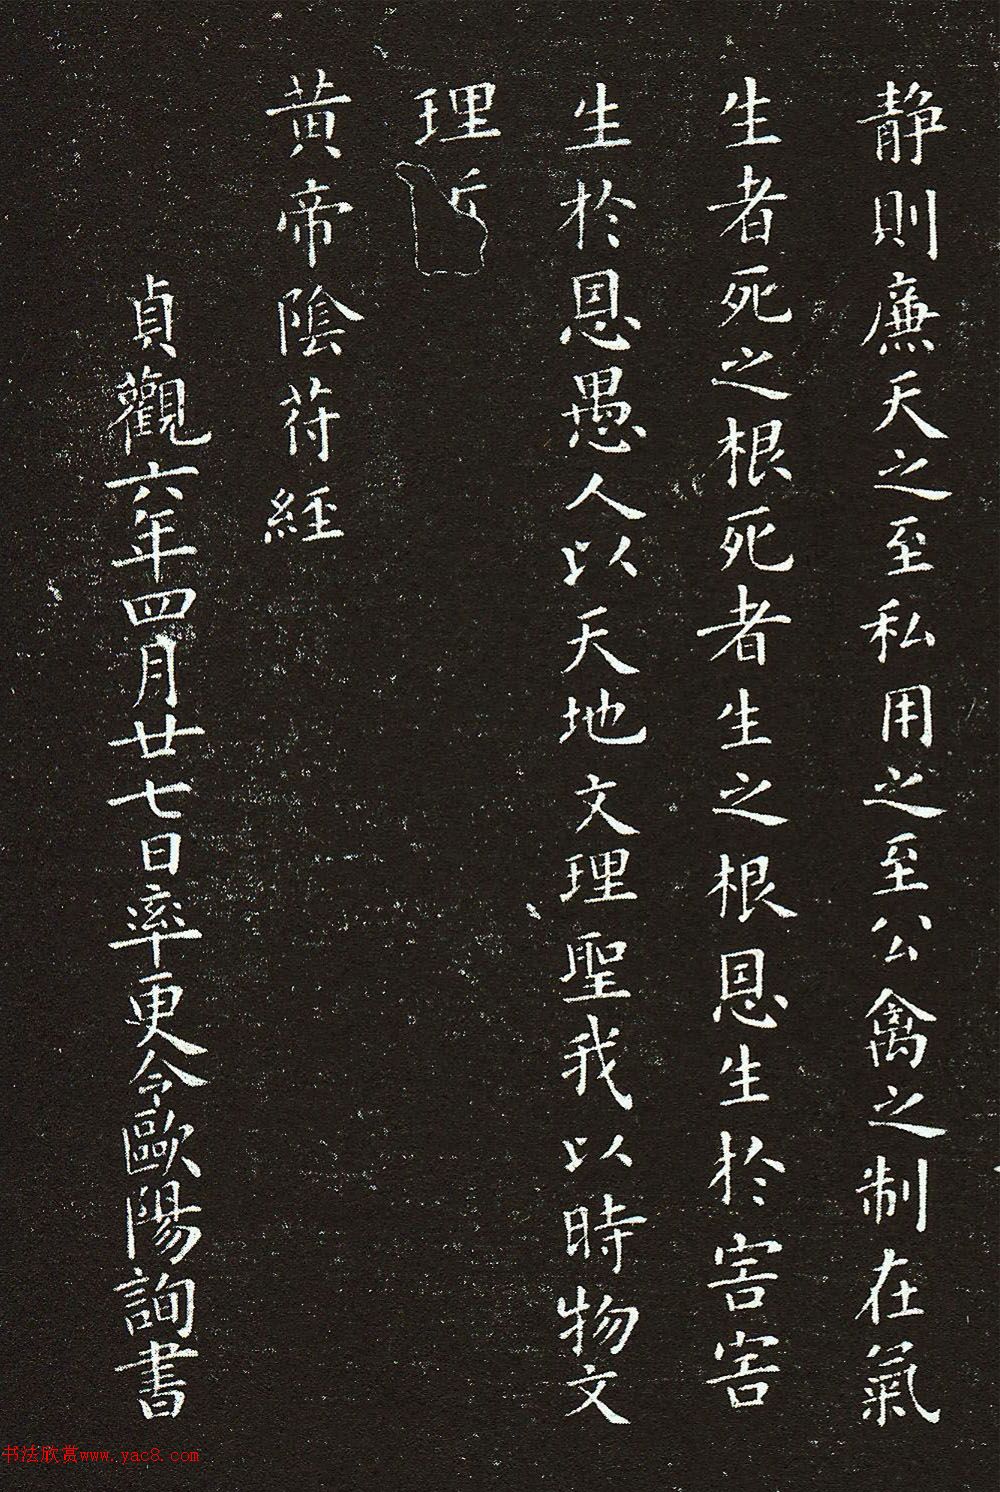 靜則廉天之至私用之至公禽之制在氣
生者死之根死者生之根恩生於害害
生於恩愚人以天地文理聖我以時物文
理
黃帝陰苻經
貞觀六年四月廿七日率更令歐陽詢書
书法欣赏www.yac8.com